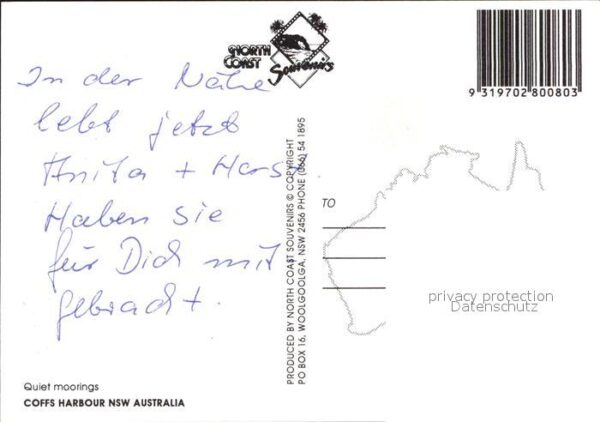 NORTH
COAST
Souvenirs
9 319702 800803
In der Nähe
lebt jetzt
Anita + Horst
Haben sie
für Dich mit
gebracht.
PRODUCED BY NORTH COAST SOUVENIRS © COPYRIGHT
PO BOX 16, WOOLGOOLGA, NSW 2456 PHONE (066) 54 1895
TO
privacy protection
Datenschutz
Quiet moorings
COFFS HARBOUR NSW AUSTRALIA